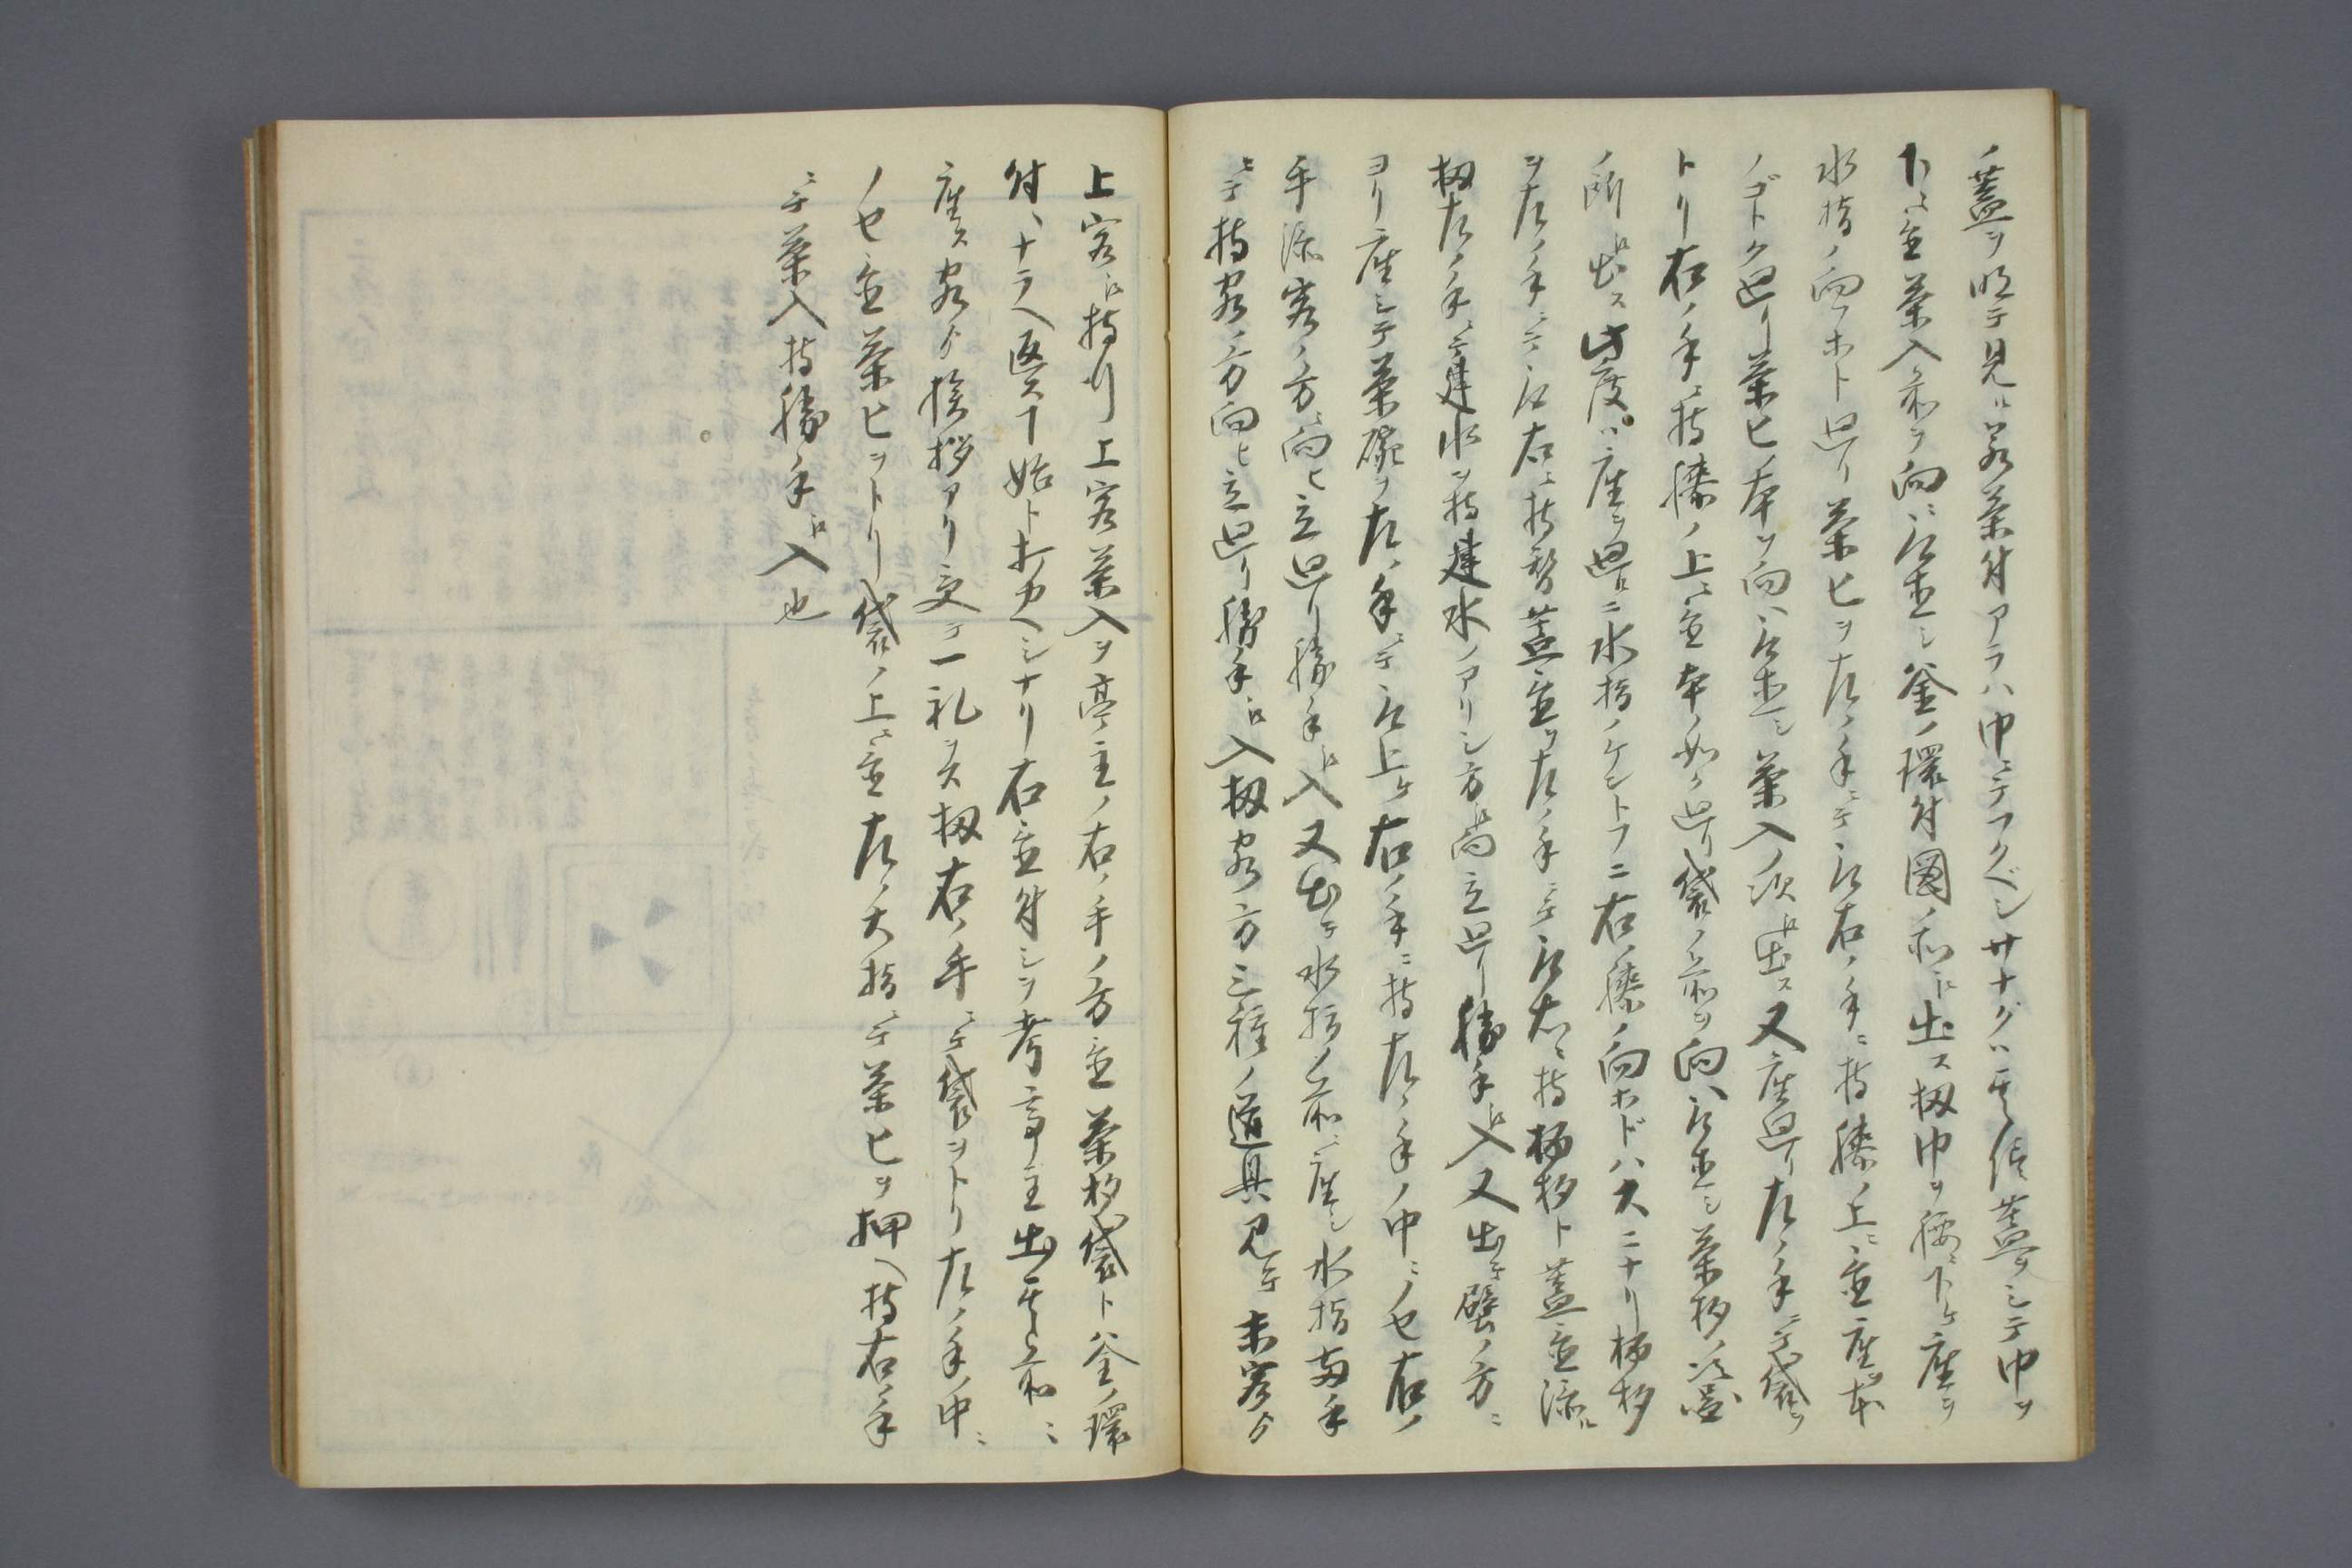 ノ蓋ヲ明テ見ル若茶付アラハ巾ニテフクベシサナクハ其侭蓋ヲシテ巾ヲ
下ニ置茶入前ヲ向ニ取直シ釜ノ環付図ノ所ニ出ス扨巾ヲ腰ニ下ケ座ヲ
水指ノ向フホト廻リ茶匕ヲ左ノ手ニテ取右ノ手ニ持膝ノ上ニ置座ヲ本
ノゴトク廻リ茶匕ノ本ヲ向ヘ取直シ茶入ノ次ニ出ス又座廻リ左ノ手ニテ袋ヲ
トリ右ノ手ニ持膝ノ上ニ置本ノ如ク廻リ袋ノ前ヲ向ヘ取直シ茶杓ノ次図
ノ所ニ出ス此度ハ座ヲ廻ルニ水指ノケントフニ右ノ膝ノ向ホドハ大ニナリ柄杓
ヲ左ノ手ニテ取右ニ持暫蓋置ヲ左ノ手ニテ取右ニ持柄杓ト蓋置添ル
扨左ノ手ニテ建水ヲ持建水ノアリシ方ニ向立廻リ勝手ニ入又出テ壁ノ方ニ
ヨリ座シテ茶碗ヲ左ノ手ニテ取上ケ右ノ手ニ持左ノ手ノ中ニノセ右ノ
手添客ノ方ニ向ヒ立廻リ勝手ニ入又出テ水指ノ前ニ座シ水指両手
ニテ持客ノ方向ヒ立廻リ勝手ニ入扨客方三種ノ道具見テ末客ゟ
上客ニ持行上客茶入ヲ亭主ノ右ノ手ノ方置茶杓袋ト釜ノ環
付ヘナラヘ返ス丁始ト打カヘシナリ右置付シヲ考亭主出其前ニ
座ス客ゟ挨拶アリ受テ一礼ヲス扨右ノ手ニテ袋ヲトリ左ノ手ノ中ニ
ノセ置茶匕ヲトリ袋ノ上ニ置左ノ大指ニテ茶匕ヲ押ヘ持右ノ手
ニテ茶入持勝手ニ入也